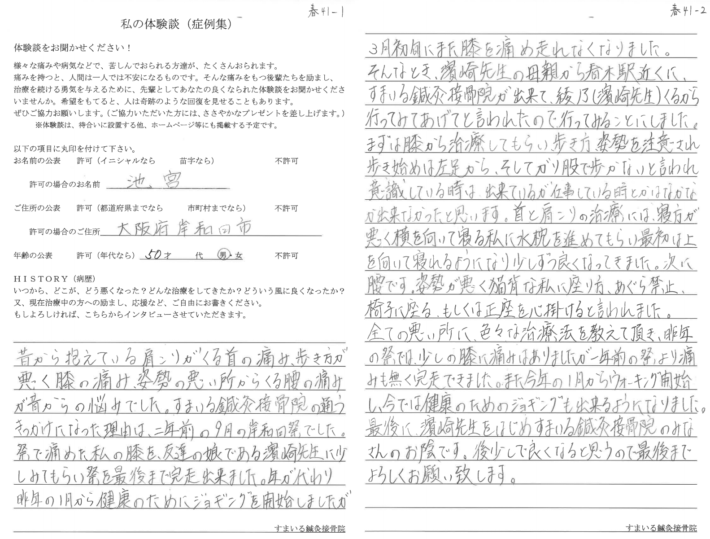 春41-1
私の体験談（症例集）
体験談をお聞かせください！
様々な痛みや病気などで、苦しんでおられる方達が、たくさんおられます。
痛みを持つと、人間は一人では不安になるものです。そんな痛みをもつ後輩たちを励まし、
治療を続ける勇気を与えるために、先輩としてあなたの良くなられた体験談をお聞かせくださ
いませんか。希望をもてると、人は奇跡のような回復を見せることもあります。
ぜひご協力お願いします。（ご協力いただいた方には、ささやかなプレゼントを差し上げます。）
※体験談は、待合いに設置する他、ホームページ等にも掲載する予定です。
以下の項目に丸印を付けて下さい。
お名前の公表 許可（イニシャルなら 苗字なら） 不許可
許可の場合のお名前 池宮
ご住所の公表 許可（都道府県までなら 市町村までなら） 不許可
許可の場合のご住所 大阪府岸和田市
年齢の公表 許可（年代なら） 50才 代 男・女 不許可
HISTORY（病歴）
いつから、どこが、どう悪くなった？どんな治療をしてきたか？どういう風に良くなったか？
又、現在治療中の方への励まし、応援など、ご自由にお書きください。
もしよろしければ、こちらからインタビューさせていただきます。
昔から抱えている肩こりがくる首の痛み、歩き方が
悪く膝の痛み、姿勢の悪い所からくる腰の痛み
が昔からの悩みでした。すまいる鍼灸接骨院の通う
きっかけになった理由は、二年前の9月の岸和田祭でした。
祭で痛めた私の膝を、友達の娘である濱崎先生に少
しみてもらい祭を最後まで完走出来ました。年が代わり
昨年の1月から健康のためにジョギングを開始しましたが
すまいる鍼灸接骨院
春41-2
3月初旬にまた膝を痛め走れなくなりました。
そんなとき、濱崎先生の母親から春木駅近くに、
すまいる鍼灸接骨院が出来て、綾乃(濱崎先生)くるから
行ってみてあげてと言われたので行ってみることにしました。
まずは膝から治療してもらい、歩き方、姿勢を注意され
歩き始めは左足から、そしてがり股で歩かないと言われ
意識している時は、出来ているが仕事している時とかはなかな
か出来なかったと思います。首と肩こりの治療には、寝方が
悪く横を向いて寝る私に水枕を進めてもらい最初は上
を向いて寝れるようになり少しずつ良くなってきました。次に
腰です。姿勢が悪く猫背な私に座り方、あぐら禁止、
椅子に座る、もしくは正座を心掛けると言われました。
全ての悪い所に、色々な治療法を教えて頂き、昨年
の祭では、少しの膝に痛みはありましたが一年前の祭より痛
みも無く完走できました。また今年の1月からウォーキング開始
し、今では健康のためのジョギングも出来るようになりました。
最後に、濱崎先生をはじめすまいる鍼灸接骨院のみな
さんのお陰です。後少しで良くなると思うので最後まで
よろしくお願い致します。
すまいる鍼灸接骨院